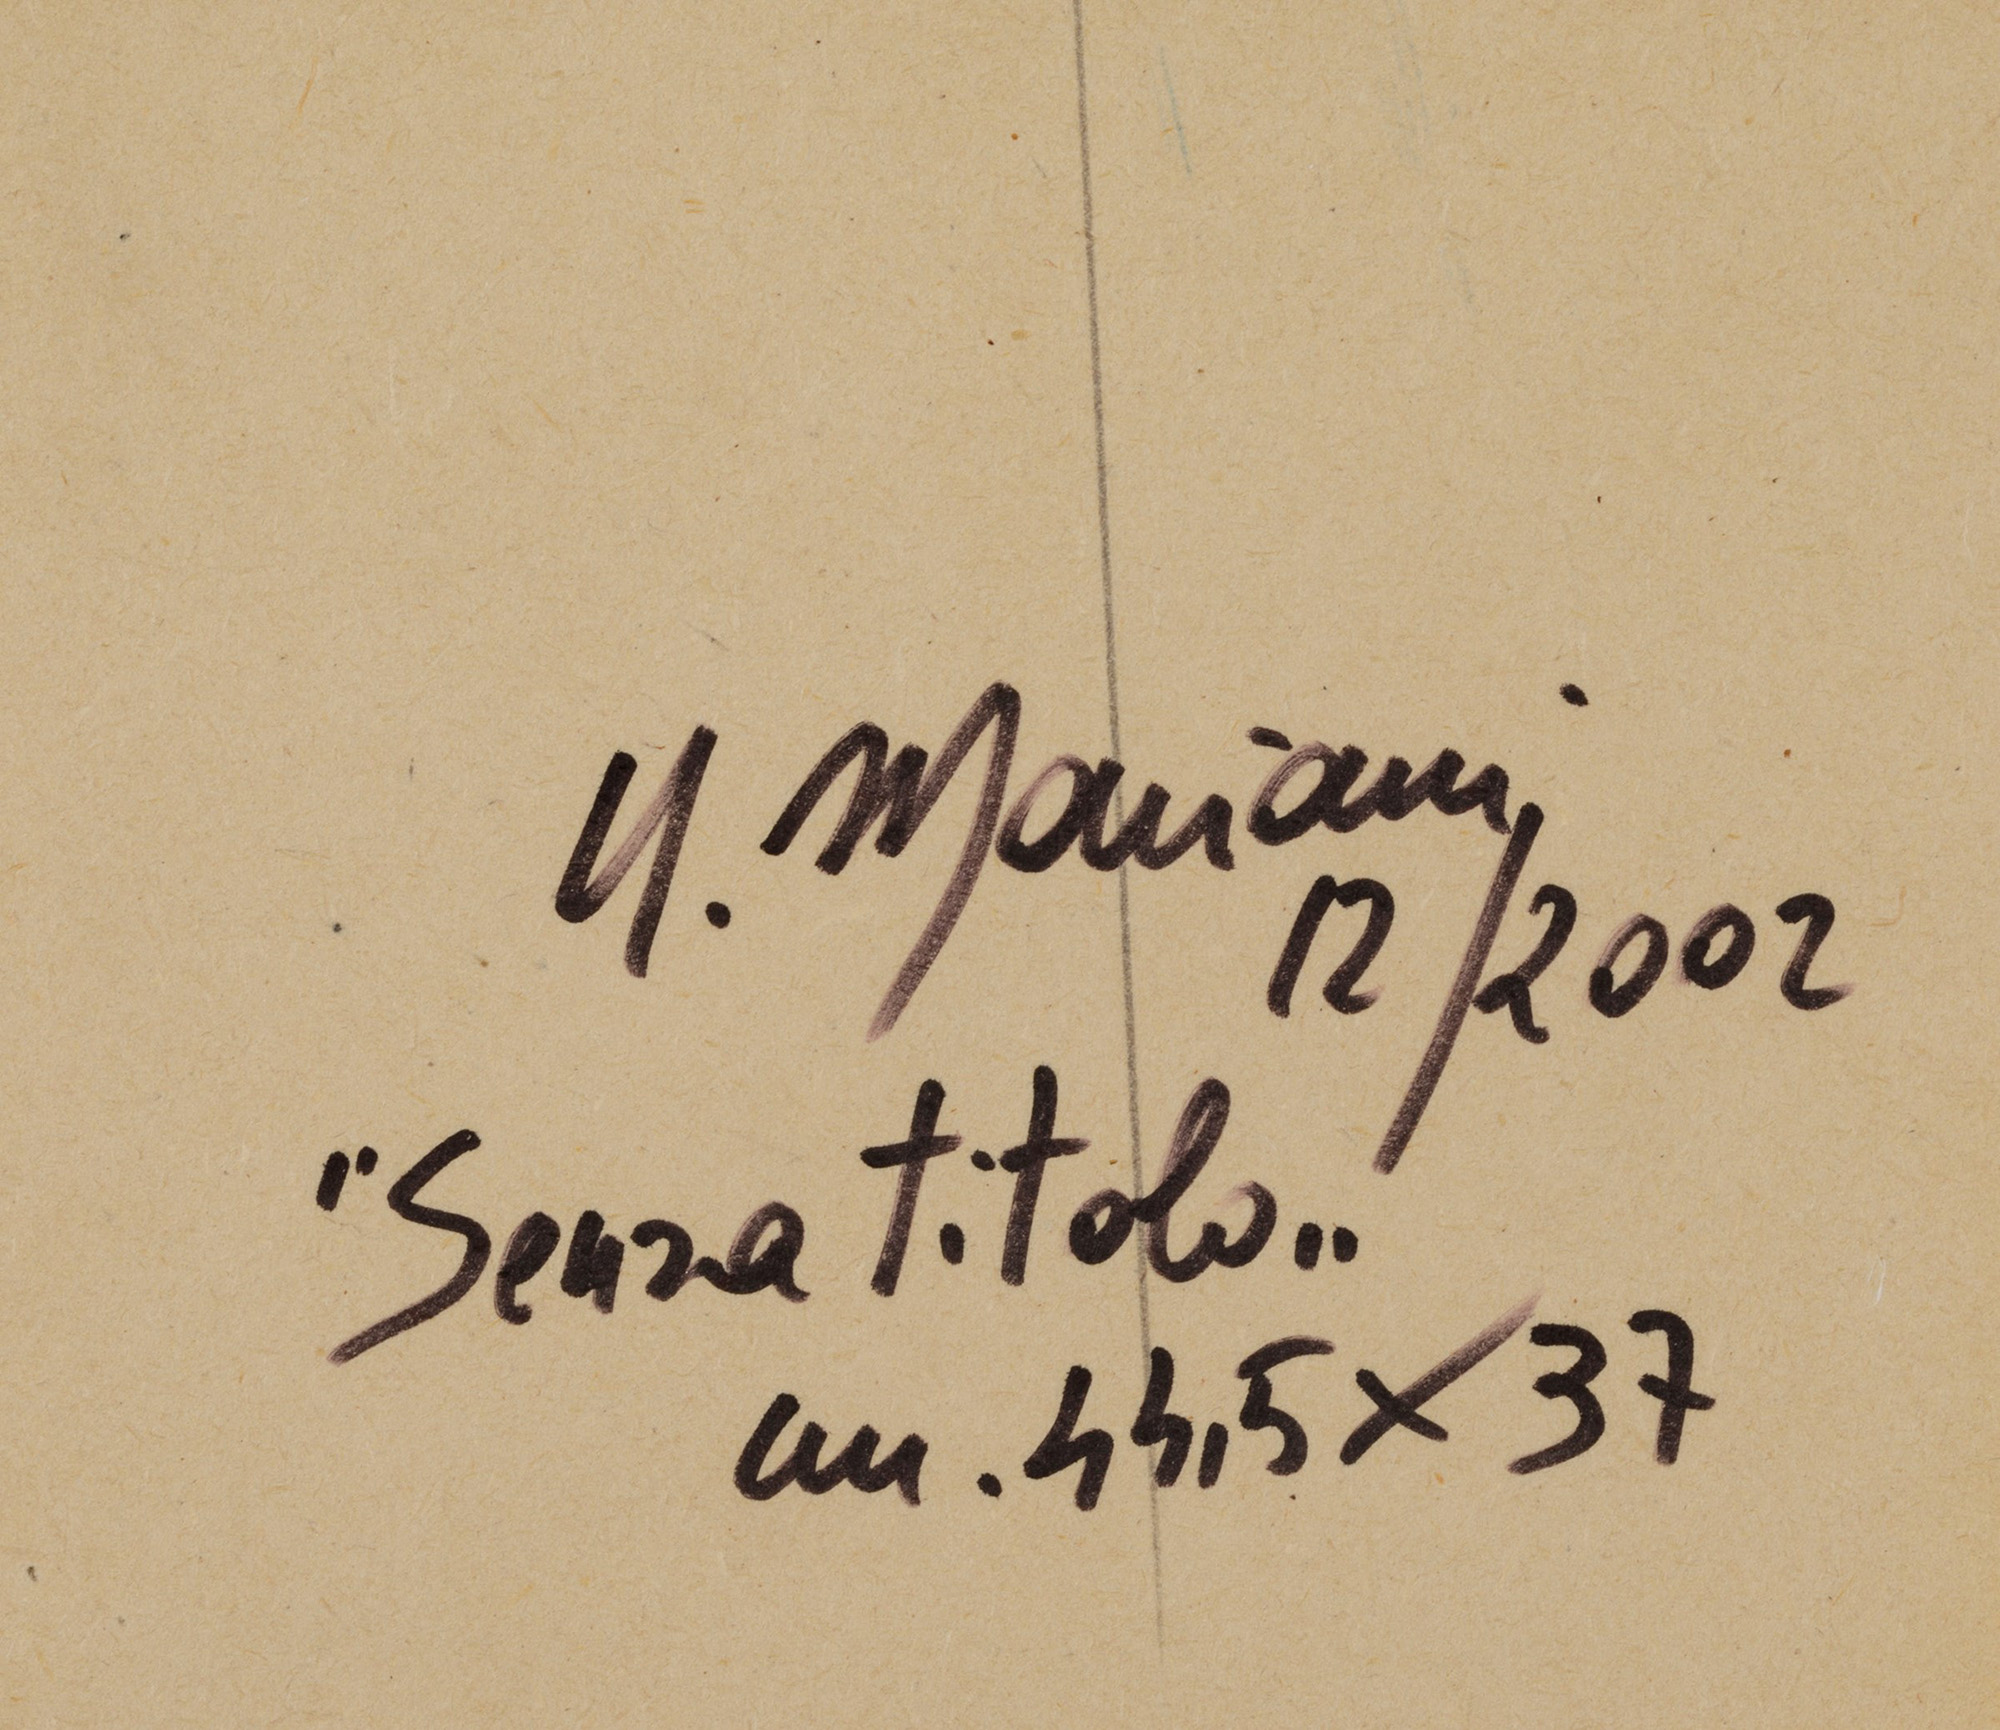 U. Mariani
12/2002
"Senza titolo"
cm. 44,5 x 37